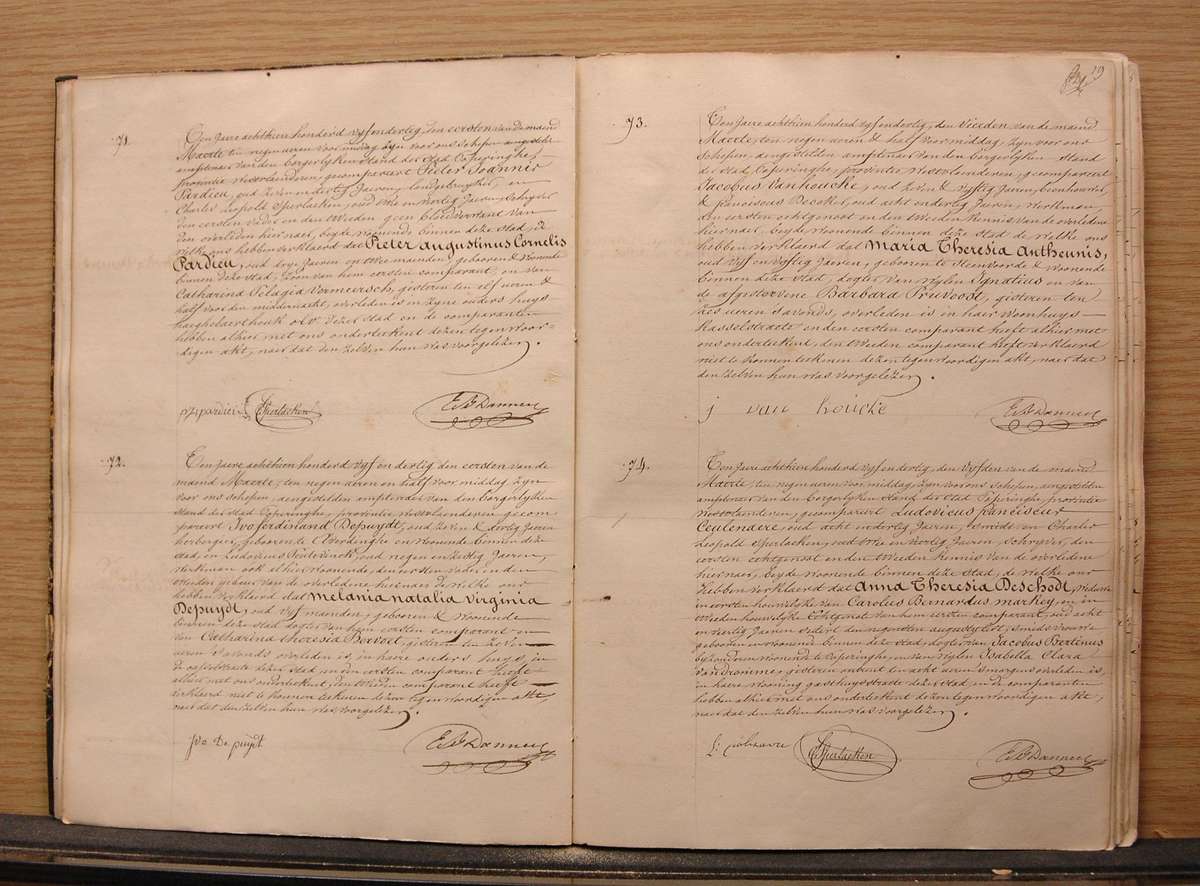 71.
Ten jaere achthien honderd vyf en dertig, den eersten van de maend
Maerte, ten negen ueren voor middag zyn voor ons schepen aengestelden
amptenaer van den borgerlyken stand der stad Poperinghe,
provintie Westvlaenderen, gecompareert Pieter Joannes
Pardieu, oud zeven en dertig Jaeren, landgebruyker, en
Charles Leopold Sperlaeken, oud drie en veertig Jaeren, schryver
den eersten vader en den tweeden geen bloedverwant van
den overleden hier naer, beyde woonende binnen deze stad, de
welke ons hebben verklaerd dat Pieter Augustinus Cornelis
Pardieu, oud Jaeren en twee maenden, geboren & woonende
binnen deze stad, zoon van hem eersten comparant, en van
Catharina Pelagia Vermeersch, gisteren ten elf ueren &
half voor den middernacht, overleden is in zyne ouders huys
dezer stad en de comparanten
hebben alhier met ons onderteekent dezen tegenwoor-
digen akt, naer dat den zelven hun was voorgelezen.
p j pardieu Sperlaeken
72.
Ten jaere achthien honderd vyf en dertig den eersten van de
maend Maerte, ten negen ueren en half voor middag zyn
voor ons schepen, aengestelden amptenaer van den borgerlyken
stand der stad Poperinghe, provintie Westvlaenderen gecom-
pareert Ivo Ferdinand Depuydt, oud zeven & dertig Jaeren
herbergier, geboren te & woonende binnen deze
stad, en Ludovicus oud negen en Jaeren,
werkman ook alhier woonende, den eersten vader en den
tweeden gebuer van de overledene hier naer de welke ons
hebben verklaerd dat melania natalia virginia
Depuydt, oud vyf maenden, geboren & woonende
binnen deze stad dogter van hem eersten comparant en
van Catharina Theresia gisteren ten zeven
ueren s'avonds overleden is, in haere ouders huys, in
de dezer stad, en den eersten comparant heeft
alhier met ons onderteekent, den tweeden comparant heeft
verklaerd niet te konnen teekenen dezen tegenwoordigen akt,
naer dat den zelven hun was voorgelezen.
ivo De puydt
73.
Ten Jaere achthien honderd vyf en dertig, den vierden van de maend
Maerte, ten negen ueren & half voor middag, zyn voor ons
schepen, aengestelden amptenaer van den borgerlyken stand
der stad Poperinghe, provintie Westvlaenderen, gecompareert
Jacobus Vanhoucke, oud zeven & vyftig Jaeren,
& Franciscus Decokel, oud acht en dertig Jaeren, werkman,
den eersten echtgenoot en den tweeden kennis van de overledene
hier naer, beyde woonende binnen deze stad de welke ons
hebben verklaerd dat Maria Theresia Antheunis,
oud vyf en vyftig Jaeren, geboren te Steenvoorde & woonende
binnen deze stad, dogter van wylen Ignatius en van
de afgestorvene Barbara Pruvoost, gisteren ten
zes ueren s'avonds, overleden is in haer woonhuys
Kasselstraete en den eersten comparant heeft alhier met
ons onderteekent, den tweeden comparant heeft verklaerd
niet te konnen teekenen dezen tegenwoordigen akt, naer dat
den zelven hun was voorgelezen.
j van houcke
74.
Ten Jaere achthien honderd vyf en dertig, den vyfden van de maend
Maerte, ten negen ueren voor middag, zyn voor ons schepen, aengestelden
amptenaer van den borgerlyken stand der stad Poperinghe, provintie
Westvlaenderen, gecompareert Ludovicus Franciscus
Ceulenaere, oud acht en dertig Jaeren, en Charles
Leopold Sperlaeken, oud drie en veertig Jaeren, schryver, den
eersten echtgenoot en den tweeden kennis van de overledene
hier naer, beyde woonende binnen deze stad, de welke ons
hebben verklaerd dat Anna Theresia Deschodt, weduwe
in eersten houwelyke van Carolus Bernardus markey, en in
tweeden houwelyke echtgenote van hem eersten comparant, oud acht
en veertig Jaeren
geboren en woonende binnen deze stad, dogter van Jacobus Bertinus
woonende te Poperinghe en van wylen Isabella Clara
Vandromme, gisteren ten acht ueren s'morgens overleden is,
in haere wooning gasthuysstraete dezer stad, en de comparanten
hebben alhier met ons onderteekent dezen tegenwoordigen akt,
naer dat den zelven hun was voorgelezen.
Sperlaeken
19